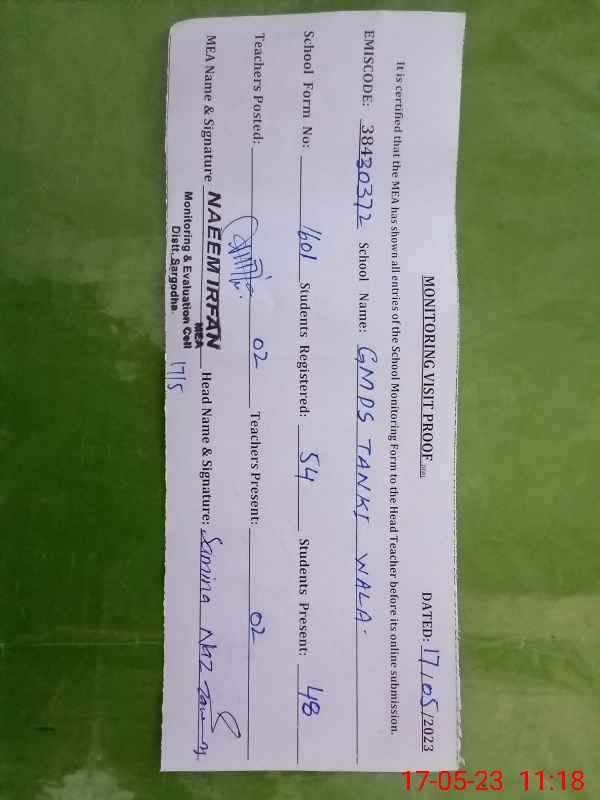 MONITORING VISIT PROOF
DATED: 17/05/2023
It is certified that the MEA has shown all entries of the School Monitoring Form to the Head Teacher before its online submission.
EMISCODE: 38430372 School Name: GMPS TANKI WALA.
School Form No: 1601 Students Registered: 54 Students Present: 48
Teachers Posted: 02 Teachers Present: 02
MEA Name & Signature NAEEM IRFAN Head Name & Signature: Samina Naz
MEA
Monitoring & Evaluation Cell
Distt. Sargodha.
17/5
17-05-23 11:18